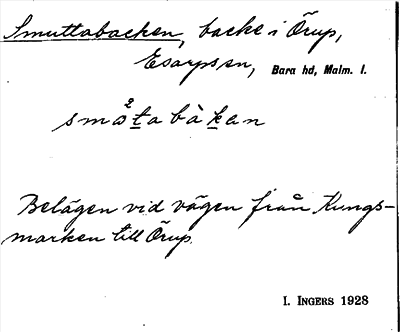 Smuttabacken, backe i Örup,
Esarps sn, Bara hd, Malm. l.
små²ṯabàḵan
Belägen vid vägen från Kungs-
marken till Örup.
I. INGERS 1928